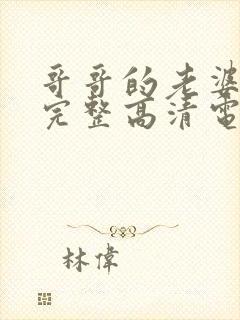 哥哥的老婆
完整高清電
林偉